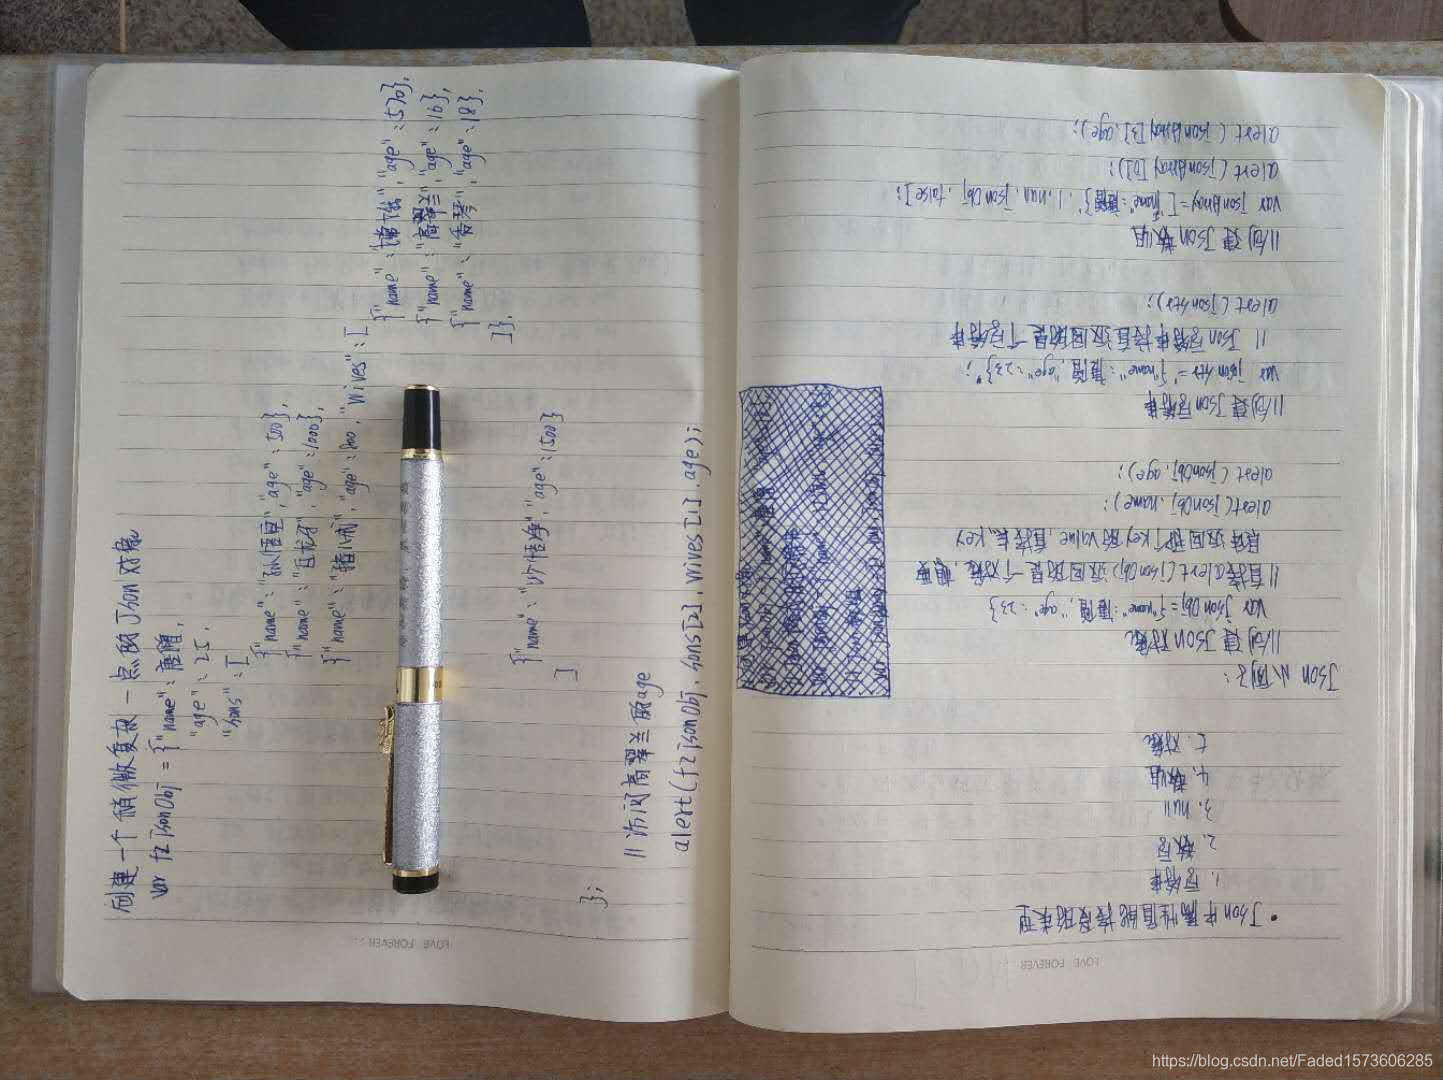 LOVE FOREVER...
• Json中属性值能接受的类型
1. 字符串
2. 数字
3. null
4. 数组
5. 对象
Json小例子:
//创建Json对象
var jsonObj={"name":"唐僧","age":23}
//直接alert(jsonObj)返回的是一个对象,想要
具体返回那个key的value,直接点key
alert(jsonObj.name);
alert(jsonObj.age);
//创建Json字符串
var jsonStr='{"name":"唐僧","age":23}';
//Json字符串接直返回的是一个字符串
alert(jsonStr);
//创建Json数组
var jsonArray=[{"name":"唐僧"},1,null,jsonObj,false];
alert(jsonArray[0]);
alert(jsonArray[3].age);
LOVE FOREVER...
创建一个稍微复杂一点的Json对象
var fzjsonObj={"name":唐僧,
"age":25,
"sons":[
{"name":"孙悟空","age":500},
{"name":"白龙马","age":1000},
{"name":"猪八戒","age":800,"wives":[
{"name":"嫦娥","age":570},
{"name":"高翠兰","age":16},
{"name":"","age":18},
]},
{"name":"沙悟净","age":1500}
]
};
//访问高翠兰的age
alert(fzjsonObj.sons[2].wives[1].age);
https://blog.csdn.net/Faded1573606285